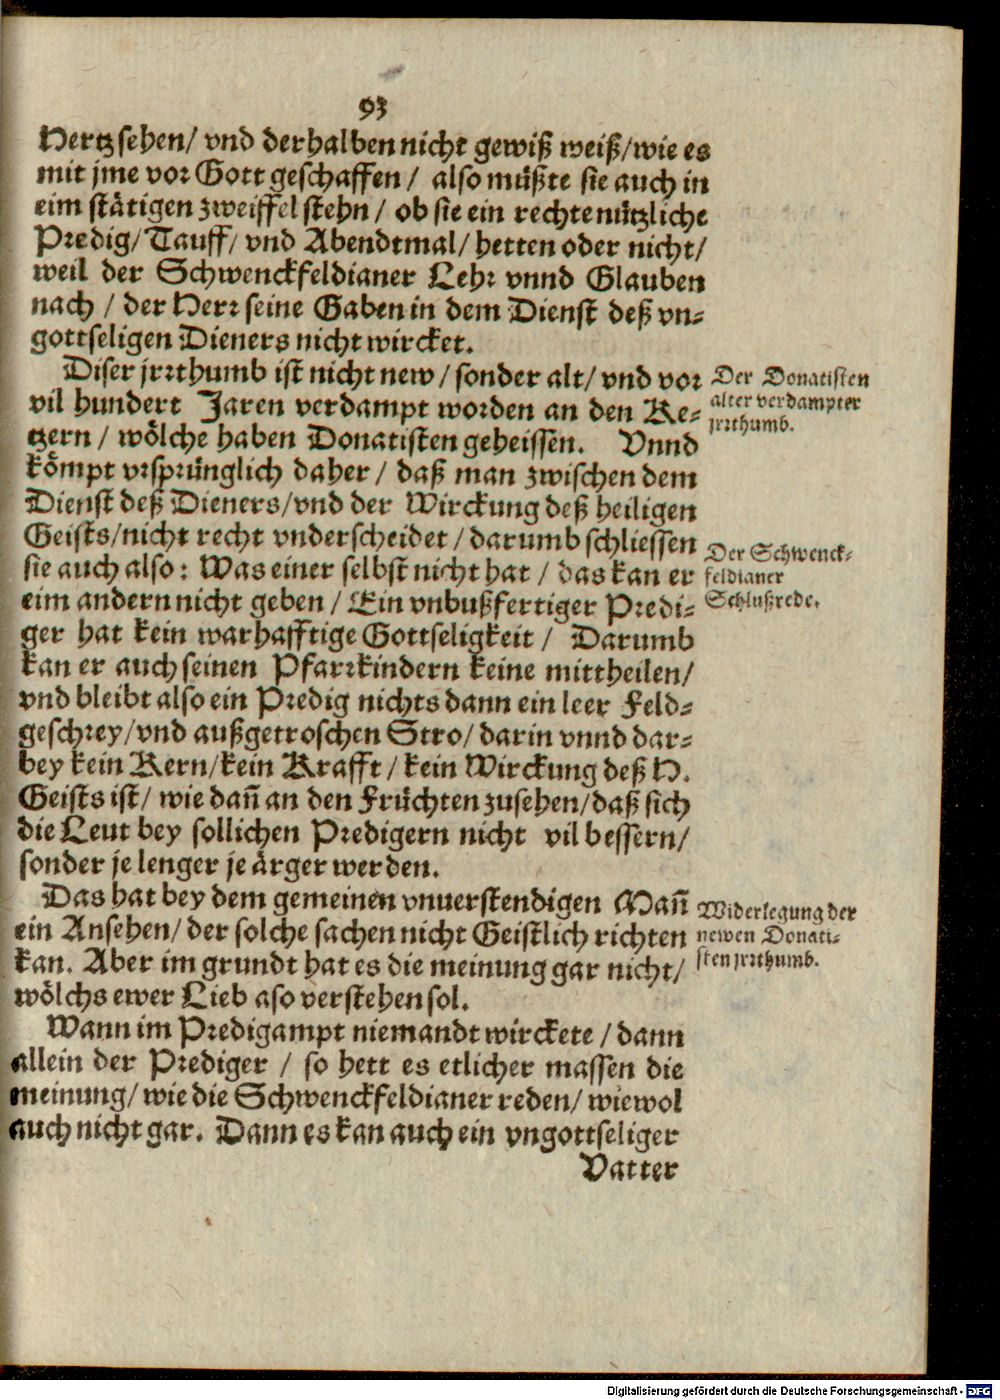 93
Hertz sehen/ vnd derhalben nicht gewiß weiß/wie es
mit jme vor Gott geschaffen/ also müßte sie auch in
eim stätigen zweiffel stehn/ ob sie ein rechte nützliche
Predig/ Tauff/ vnd Abendtmal/ hetten oder nicht/
weil der Schwenckfeldianer Lehr vnnd Glauben
nach / der Herr seine Gaben in dem Dienst deß vn-
gottseligen Dieners nicht wircket.
Diser jrrthumb ist nicht new/ sonder alt/ vnd vor
vil hundert Jaren verdampt worden an den Ke-
tzern/ wölche haben Donatisten geheissen. Vnnd
kömpt vrsprünglich daher/ daß man zwischen dem
Dienst deß Dieners/vnd der Wirckung deß heiligen
Geists/nicht recht vnderscheidet/ darumb schliessen
sie auch also: Was einer selbst nicht hat / das kan er
eim andern nicht geben/ Ein vnbußfertiger Predi-
ger hat kein warhafftige Gottseligkeit/ Darumb
kan er auch seinen Pfarrkindern keine mittheilen/
vnd bleibt also ein Predig nichts dann ein leer Feld-
geschrey/vnd außgetroschen Stro/ darin vnnd dar-
bey kein Kern/kein Krafft/ kein Wirckung deß H.
Geists ist/ wie dañ an den Früchten zusehen/daß sich
die Leut bey sollichen Predigern nicht vil bessern/
sonder je lenger je ärger werden.
Das hat bey dem gemeinen vnuerstendigen Mañ
ein Ansehen/ der solche sachen nicht Geistlich richten
kan. Aber im grundt hat es die meinung gar nicht/
wölchs ewer Lieb aso verstehen sol.
Wann im Predigampt niemandt wirckete / dann
allein der Prediger / so hett es etlicher massen die
meinung/ wie die Schwenckfeldianer reden/ wiewol
auch nicht gar. Dann es kan auch ein vngottseliger
Vatter
Der Donatisten
alter verdampter
jrrthumb.
Der Schwenck-
feldianer
Schlußrede.
Widerlegung der
newen Donati-
sten jrrthumb.
Digitalisierung gefördert durch die Deutsche Forschungsgemeinschaft - DFG